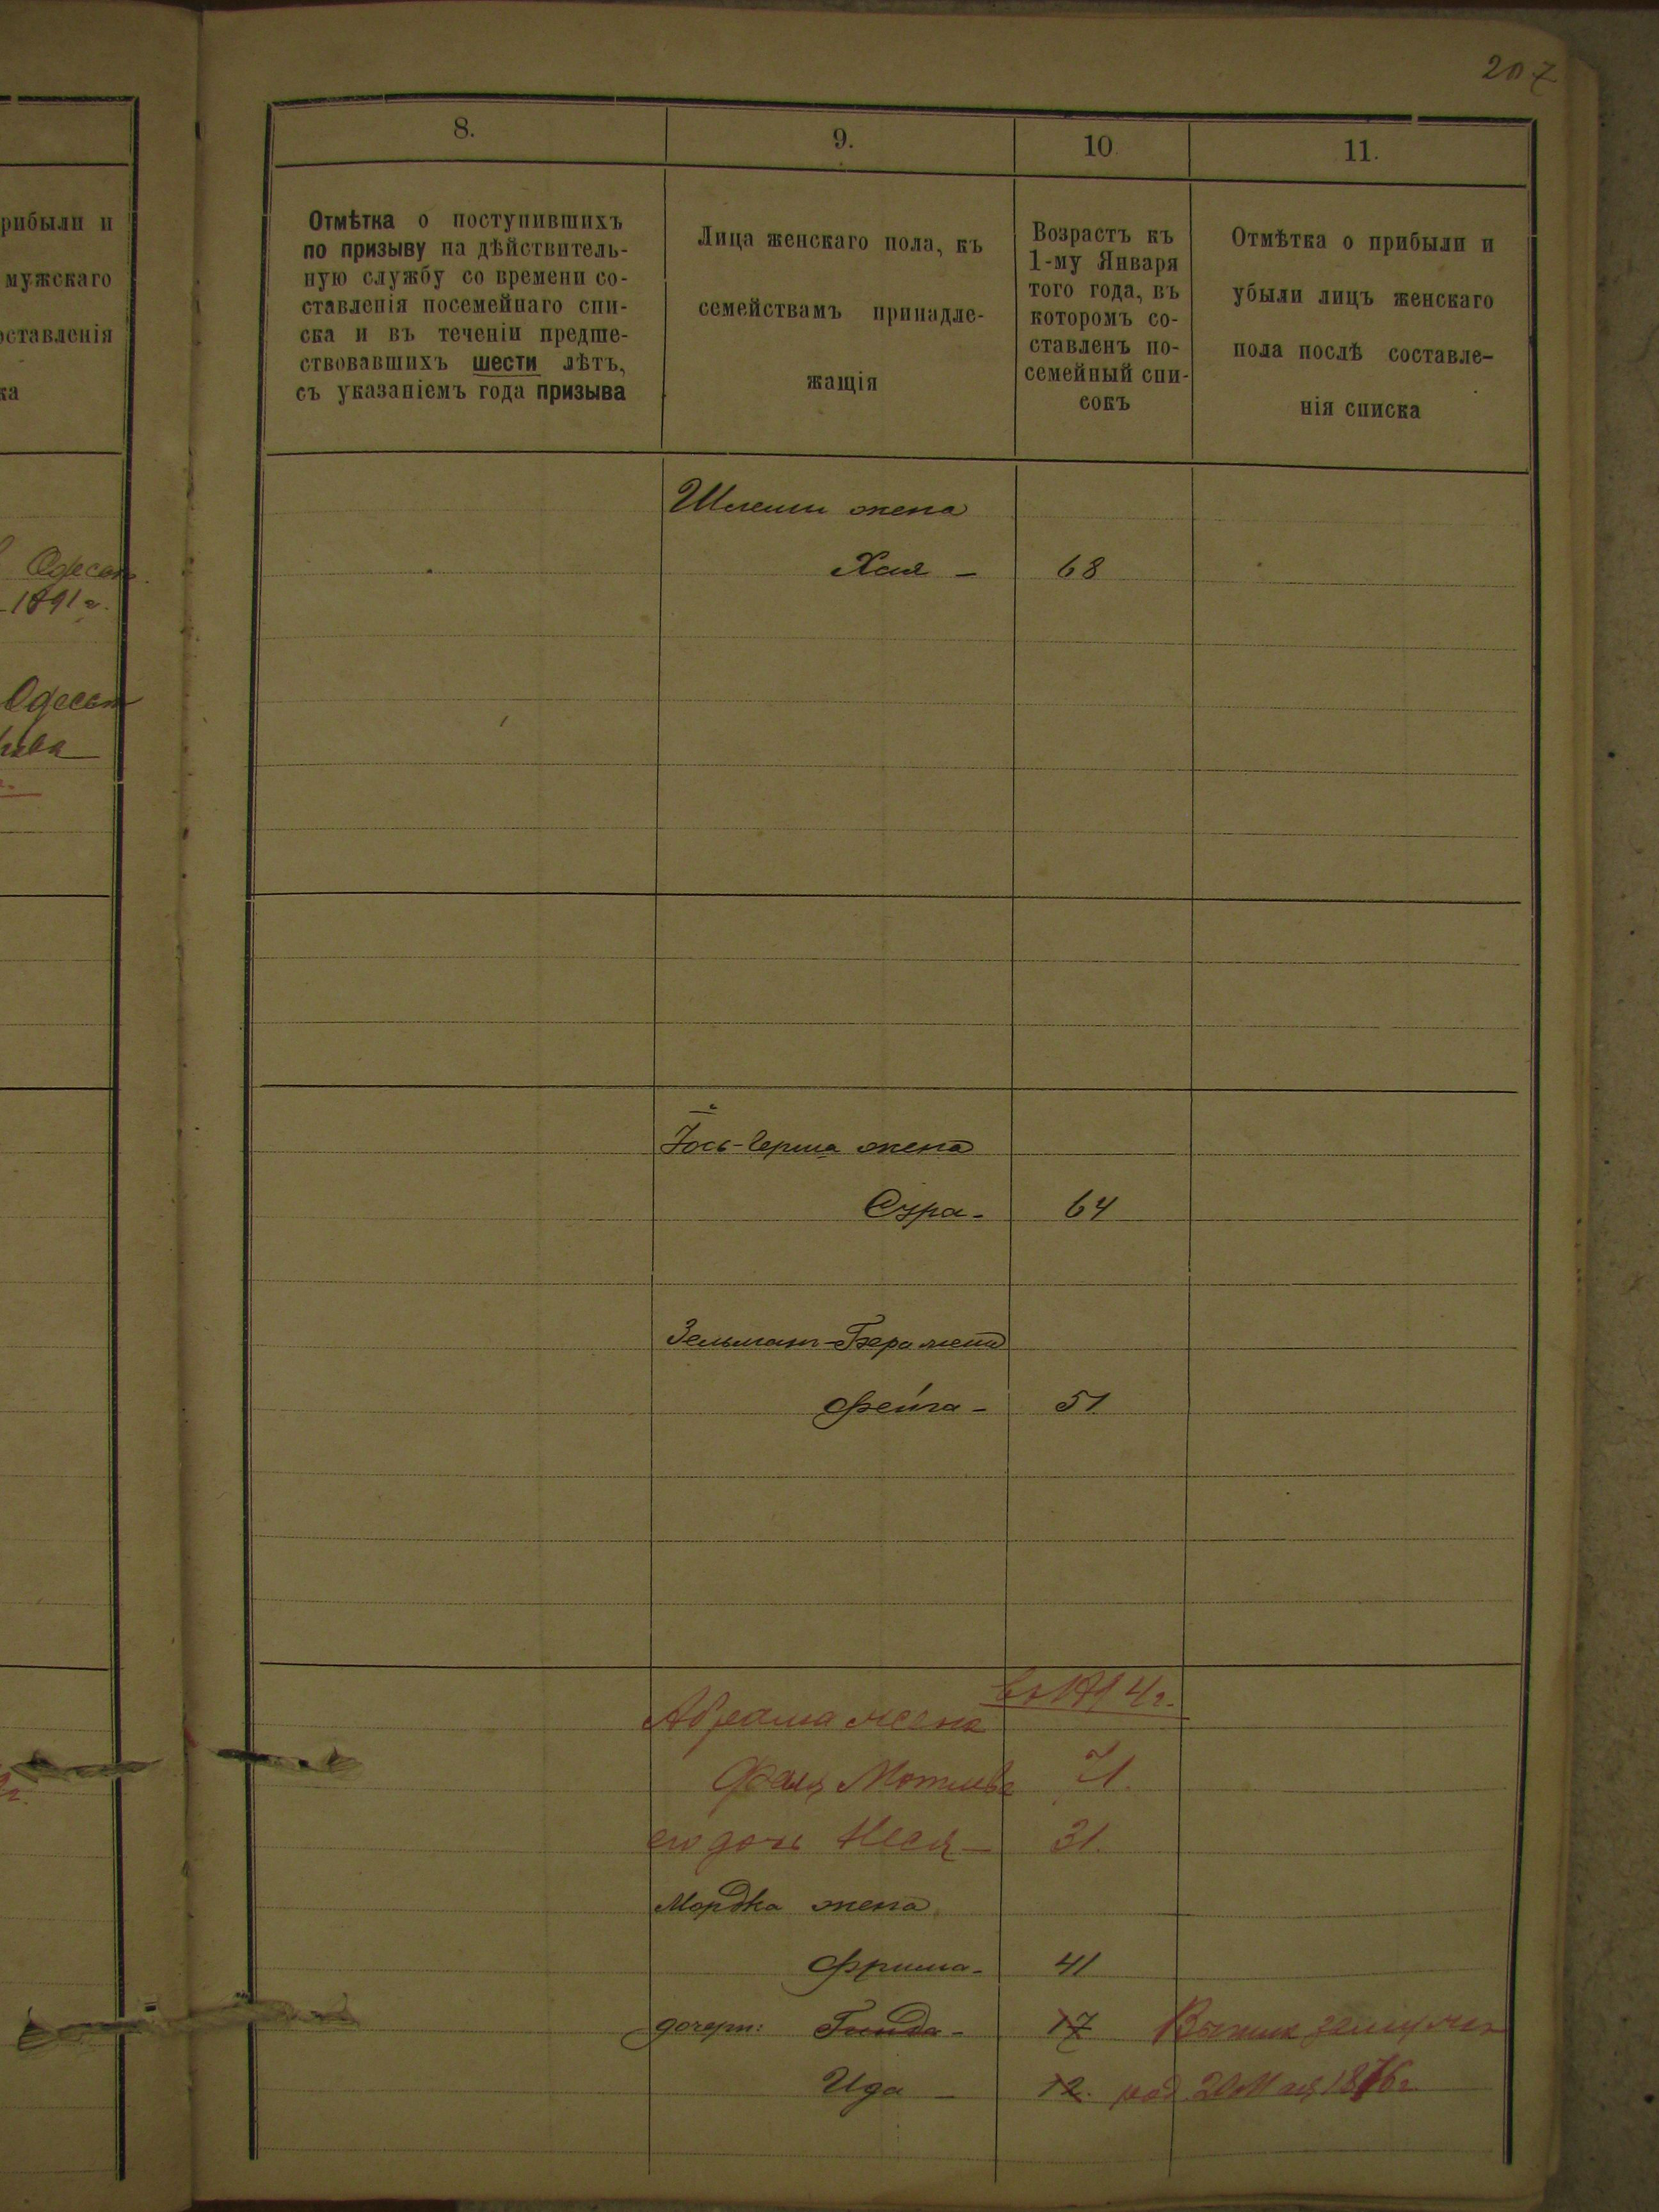 207
рибыли и
мужскаго
оставленія
ка
Одесск
1891 г.
Одесск
8.
9.
10.
11.
Отмѣтка о поступившихъ
по призыву на дѣйствитель-
ную службу со времени со-
ставленія посемейнаго спи-
ска и въ теченіи предше-
ствовавшихъ шести лѣтъ,
съ указаніемъ года призыва
Лица женскаго пола, къ
семействамъ принадле-
жащія
Возрастъ къ
1-му Января
того года, въ
которомъ со-
ставленъ по-
семейный спи-
сокъ
Отмѣтка о прибыли и
убыли лицъ женскаго
пола послѣ составле-
нія списка
жена
Хая - 68
Іось-Герша жена
Сура - 64
Зельман-Бера жена
Фейга - 51
Абрама жена
Фаля 71.
его дочь Неся - 31.
Мордка жена
Фрима - 41
дочери: Гинда - 17 замуж
Ида - 12. род 20 Мая 1876 г.